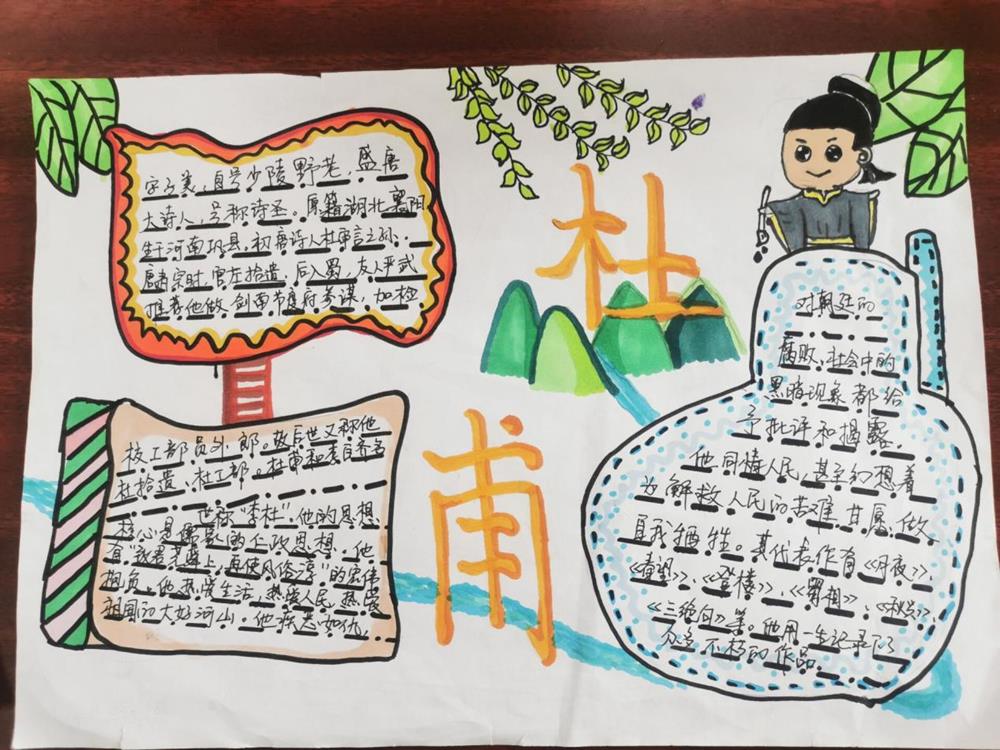 杜
甫
字子美，自号少陵野老，盛唐
大诗人，号称诗圣。原籍湖北襄阳
生于河南巩县，初唐诗人杜审言之孙。
肃宗时，官左拾遗。后入蜀，友人严武
推荐他做剑南节度府参谋，加检
校工部员外郎。故后世又称他
杜拾遗、杜工部。杜甫和李白齐名
世称“李杜”，他的思想
核心是儒家的仁政思想。他
有“致君尧舜上，再使风俗淳”的宏伟
抱负。他热爱生活，热爱人民，热爱
祖国的大好河山。他疾恶如仇，
对朝廷的
腐败、社会中的
黑暗现象都给
予批评和揭露。
他同情人民，甚至幻想着
为解救人民的苦难甘愿做
自我牺牲。其代表作有《月夜》、
《春望》、《登楼》、《蜀相》、《秋兴》、
《三绝句》等。他用一生记录下了
众多不朽的作品。